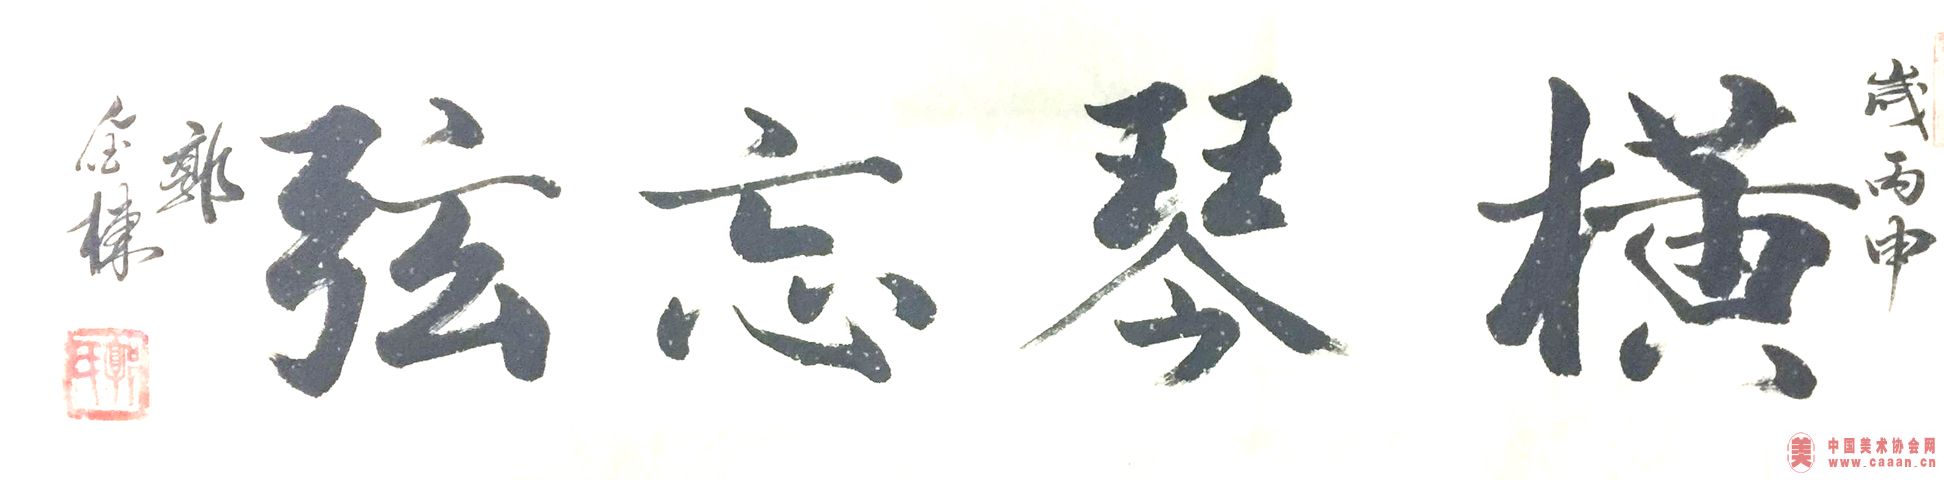 歲丙申
橫琴忘弦
郭金棟
郭
中国美术协会网
www.caaan.cn